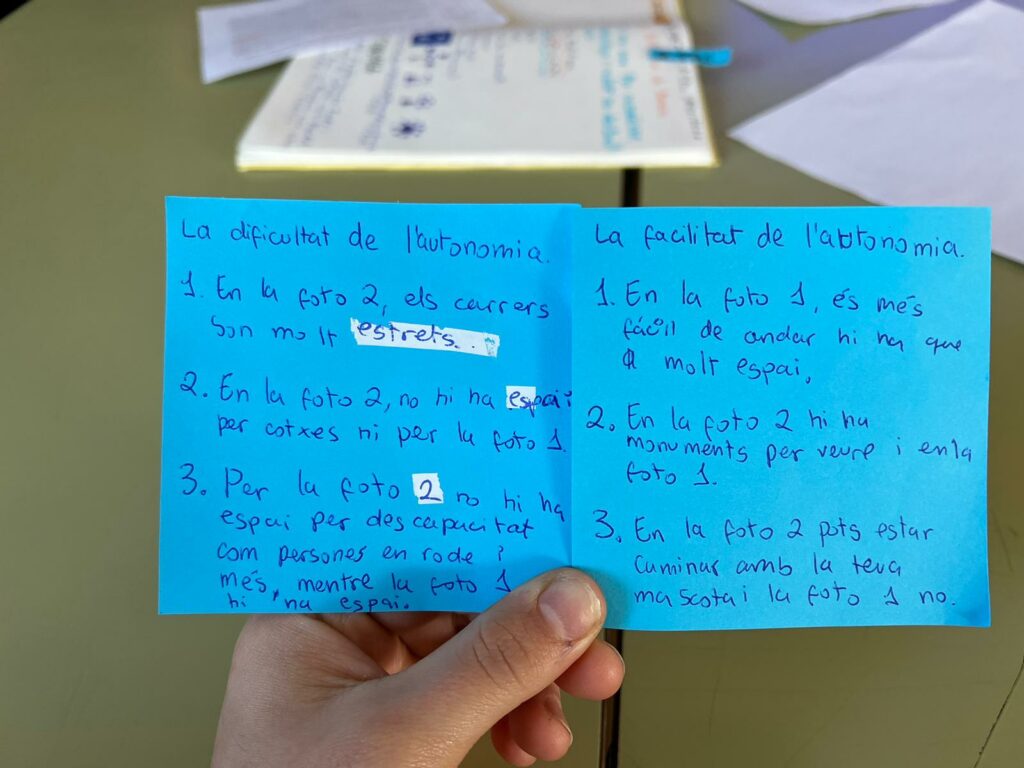 La dificultat de l'autonomia.
1. En la foto 2, els carrers
son molt estrets...
2. En la foto 2, no hi ha espai
per cotxes ni per la foto 1.
3. Per la foto 2 no hi ha
espai per descapacitat
com persones en rode i
més, mentre la foto 1
hi ha espai.
La facilitat de l'autonomia.
1. En la foto 1, és més
fácil de andar hi ha que
molt espai.
2. En la foto 2 hi ha
monuments per veure i en la
foto 1.
3. En la foto 2 pots estar
caminar amb la teva
mascota i la foto 1 no.